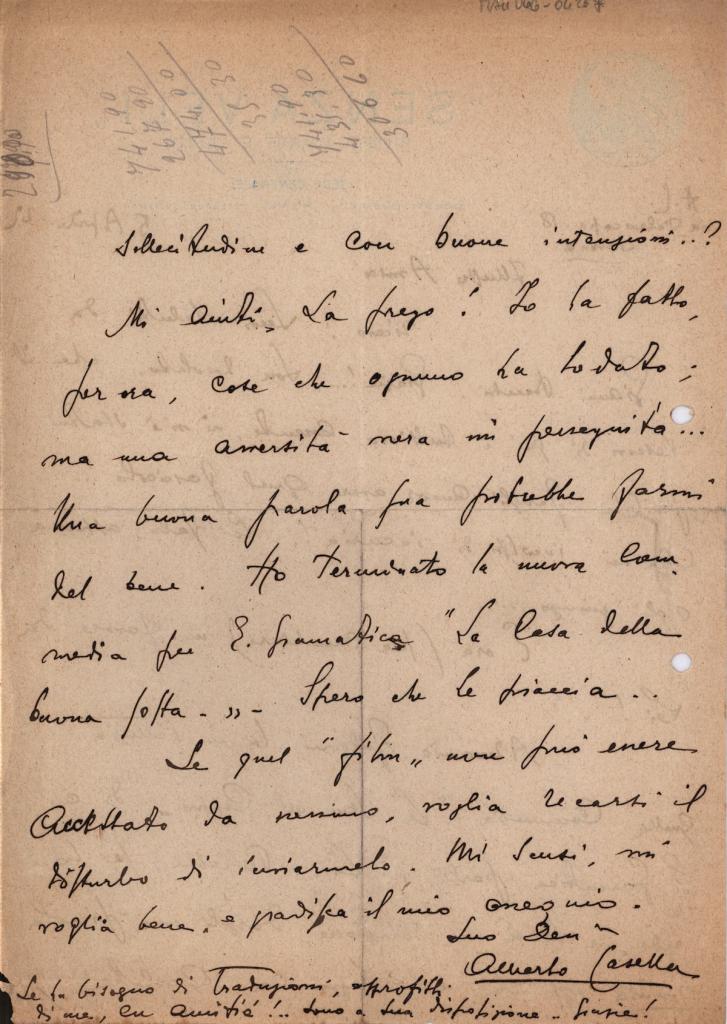 sollecitudine e con buone intenzioni..?
Mi aiuti, La prego! Io ho fatto,
per ora, cose che ognuno ha lodato;
ma una avversità nera mi perseguita...
Una buona parola sua potrebbe farmi
del bene. Ho terminato la nuova Com
media per E. Gramatica "La Casa della
buona sosta.„ - Spero che le piaccia..
Se quel "film„ non può essere
accettato da nessuno, voglia recarsi il
disturbo di inviarmelo. Mi scusi, mi
voglia bene, e gradisca il mio ossequio.
Suo Dev.mo
Alberto Casella
Se ha bisogno di Traduzioni, approfitti
di me, en amitié!.. Sono a sua disposizione.. Grazie!